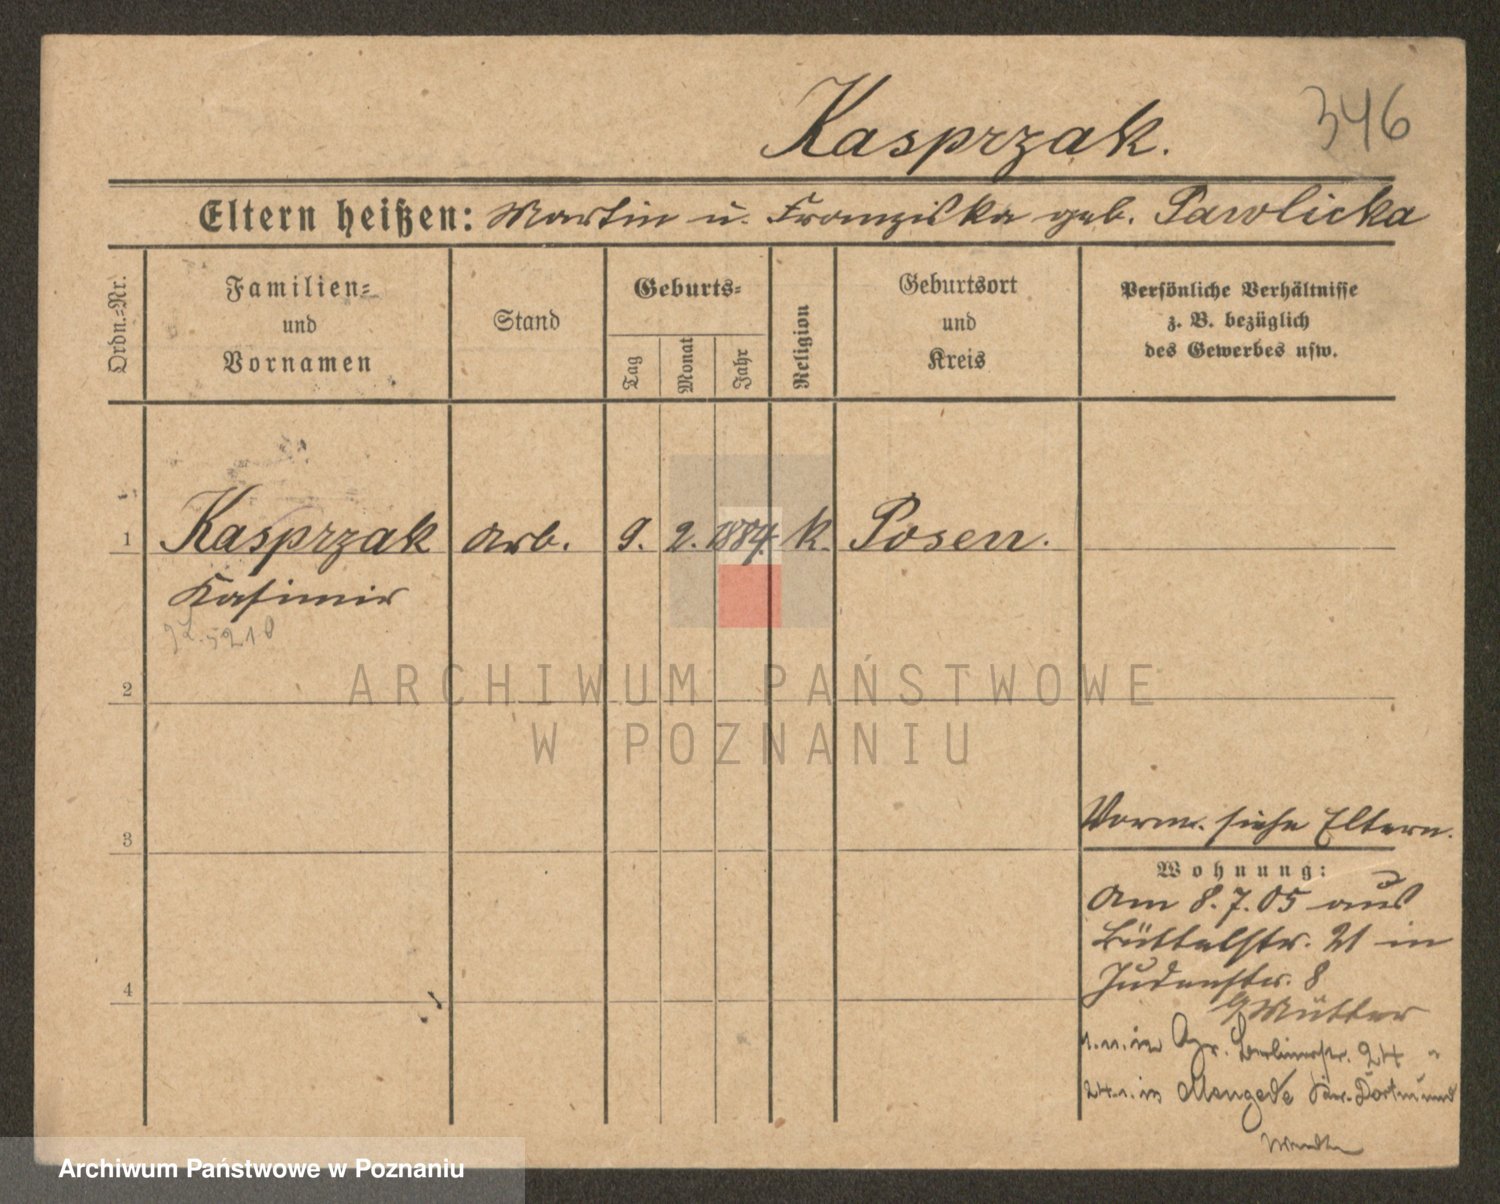 346
Kasprzak.
Eltern heißen: Martin u. Franziska geb. Pawlicka
Ordn.=Nr.
Familien=
und
Vornamen
Stand
Geburts=
Tag
Monat
Jahr
Religion
Geburtsort
und
Kreis
Persönliche Verhältnisse
z. B. bezüglich
des Gewerbes usw.
1 Kasprzak Arb. 9. 2. 1884. k. Posen.
Kasimir
2
ARCHIWUM PAŃSTWOWE
W POZNANIU
3
Vorm. siehe Eltern.
Wohnung:
Am 8.7.05 aus
Büttelstr. 21 in
Judenstr. 8
4
Mütter
in Gr. Berlinerstr. 24
24.1. in Mengede Dortmund
Archiwum Państwowe w Poznaniu